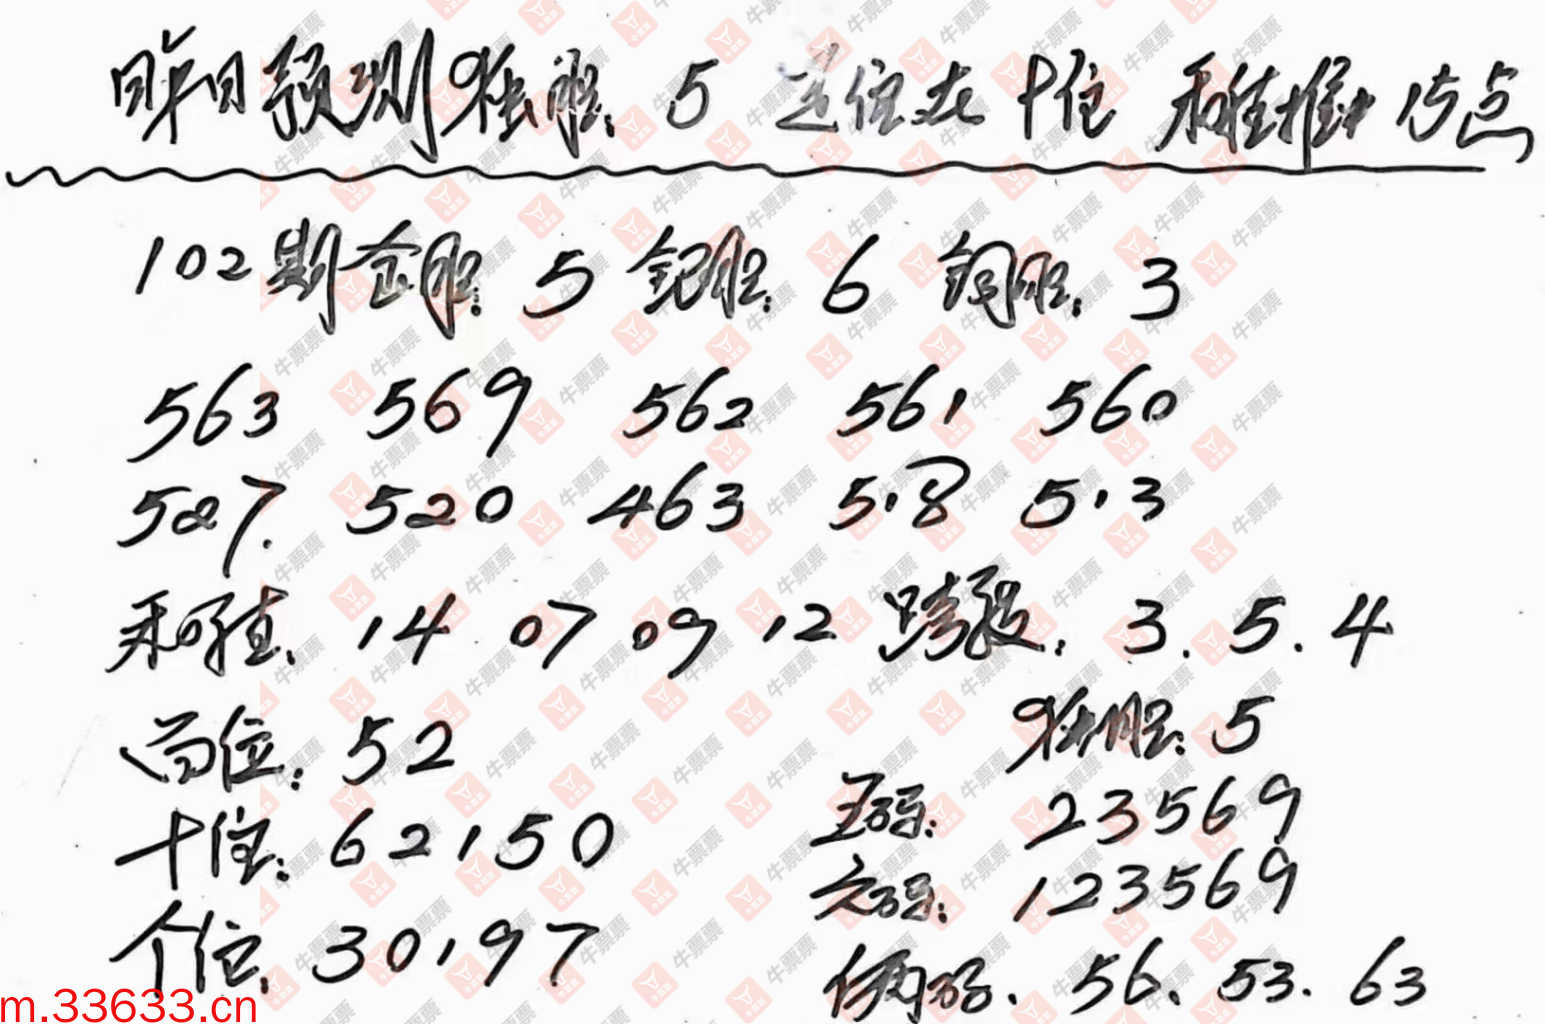 昨日预测独胆:5 定位在十位 和值推中15点
102期金胆:5 银胆:6 铜胆:3
563 569 562 561 560
527. 520 463 518 513
和值:14 07 09 12 跨度:3.5.4
独胆:5
百位:52
五码:23569
十位:62150
六码:123569
个位:30197
两码:56.53.63
m.33633.cn
牛票票